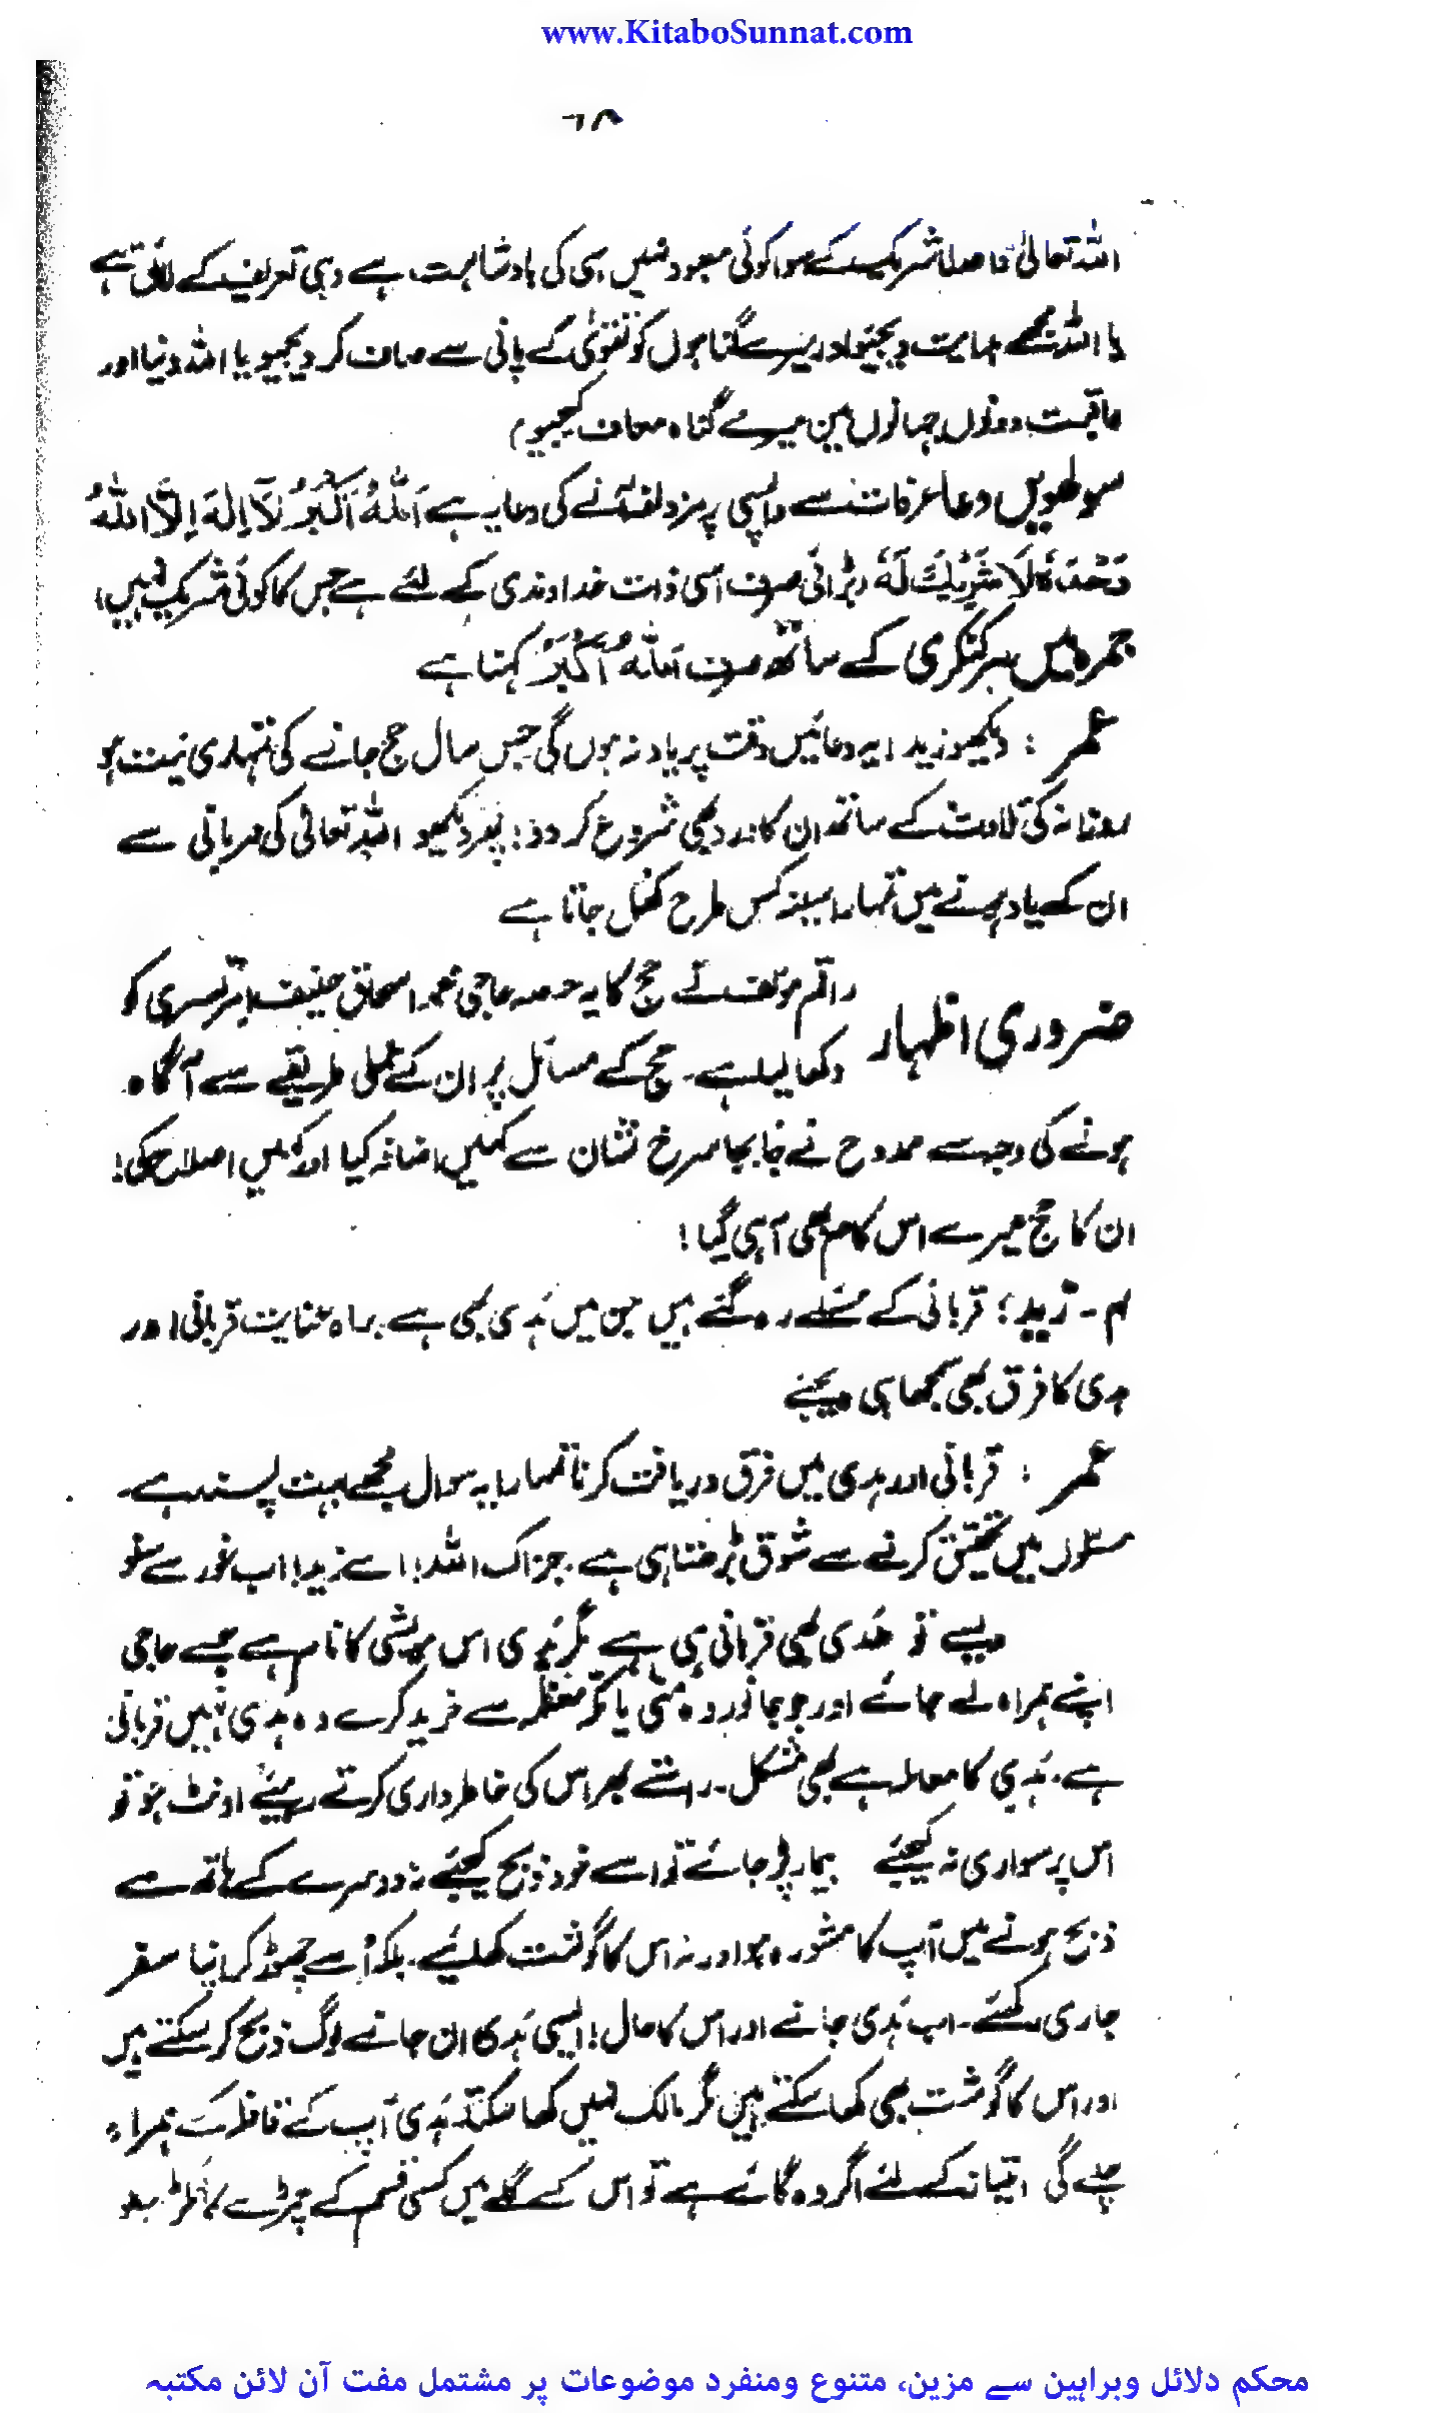 www.KitaboSunnat.com
۶۸
اللہ تعالیٰ واحد لا شریک کے سوا کوئی معبود نہیں اسی کی بادشاہت ہے وہی تعریف کے لائق ہے
یا اللہ مجھے ہدایت دیجئیو اور میرے گناہوں کو تقویٰ کے پانی سے صاف کر دیجیو یا اللہ دنیا اور
عاقبت دونوں جہانوں میں میرے گناہ معاف کیجیو
سولھویں دعا عرفات سے واپسی پر مزدلفہ آنے کی دعا یہ ہے اَللّٰهُ اَكْبَرُ لَآ اِلٰهَ اِلَّا اللّٰهُ
وَحْدَهٗ لَا شَرِيْكَ لَهٗ (بڑائی صرف اسی ذات خداوندی کے لئے ہے جس کا کوئی شریک نہیں)
جمرہ میں ہر کنکری کے ساتھ صرف اَللّٰهُ اَكْبَرُ کہنا ہے
عمر : دیکھو زید! یہ دعائیں وقت پر یاد نہ ہوں گی جس سال حج جانے کی تمہاری نیت ہو
روزانہ کی تلاوت کے ساتھ ان کا ورد بھی شروع کر دو! پھر دیکھیو اللہ تعالیٰ کی مہربانی سے
ان کے یاد ہونے میں تمہارا سینہ کس طرح کھل جاتا ہے
ضروری اظہار راقم مؤلف نے حج کا یہ حصہ حاجی محمد اسحاق حنیف امرتسری کو
دکھا لیا ہے۔ حج کے مسائل پر ان کے عملی طریقے سے آگاہ
ہونے کی وجہ سے ممدوح نے جا بجا سرخ نشان سے کہیں اضافہ کیا اور کہیں اصلاح کی!
ان کا حج میرے اس کام بھی آ ہی گیا!
م - زید : قربانی کے مسئلے رہ گئے ہیں جن میں ہَدی بھی ہے براہ عنایت قربانی اور
ہدی کا فرق بھی سمجھا ہی دیجئے
عمر : قربانی اور ہدی میں فرق دریافت کرنا تمہارا یہ سوال مجھے بہت پسند ہے۔
مسئلوں میں تحقیق کرنے سے شوق بڑھتا ہی ہے۔ جزاک اللہ! اے زید! اب غور سے سنو
ویسے تو ھَدی بھی قربانی ہی ہے مگر ہَدی اس مویشی کا نام ہے جسے حاجی
اپنے ہمراہ لے جائے اور جو جانور وہ منیٰ یا مکہ معظمہ سے خرید کرے وہ ہَدی نہیں قربانی
ہے۔ ہَدی کا معاملہ ہے بھی مشکل۔ راستے بھر اس کی خاطرداری کرتے رہیئے اونٹ ہو تو
اس پر سواری نہ کیجئے بیمار پڑ جائے تو اسے خود ذبح کیجئے نہ دوسرے کے ہاتھ سے
ذبح ہونے میں آپ کا مشورہ ہو اور نہ اس کا گوشت کھائیے۔ بلکہ اُسے چھوڑ کر اپنا سفر
جاری رکھئے۔ اب ہَدی جانے اور اس کا حال! ایسی ہَدی کا ان جانے لوگ ذبح کر سکتے ہیں
اور اس کا گوشت بھی کھا سکتے ہیں مگر مالک نہیں کھا سکتا۔ ہَدی آپ کے قافلہ کے ہمراہ
چلے گی امتیاز کے لئے اگر وہ گائے ہے تو اس کے گلے میں کسی قسم کے چمڑے کا
محکم دلائل وبراہین سے مزین، متنوع ومنفرد موضوعات پر مشتمل مفت آن لائن مکتبہ